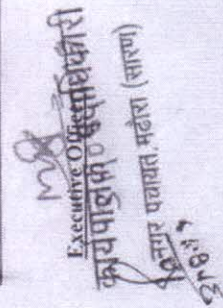 Executive Officer
कार्यपालक पदाधिकारी
नगर पंचायत, मढ़ौरा (सारण)